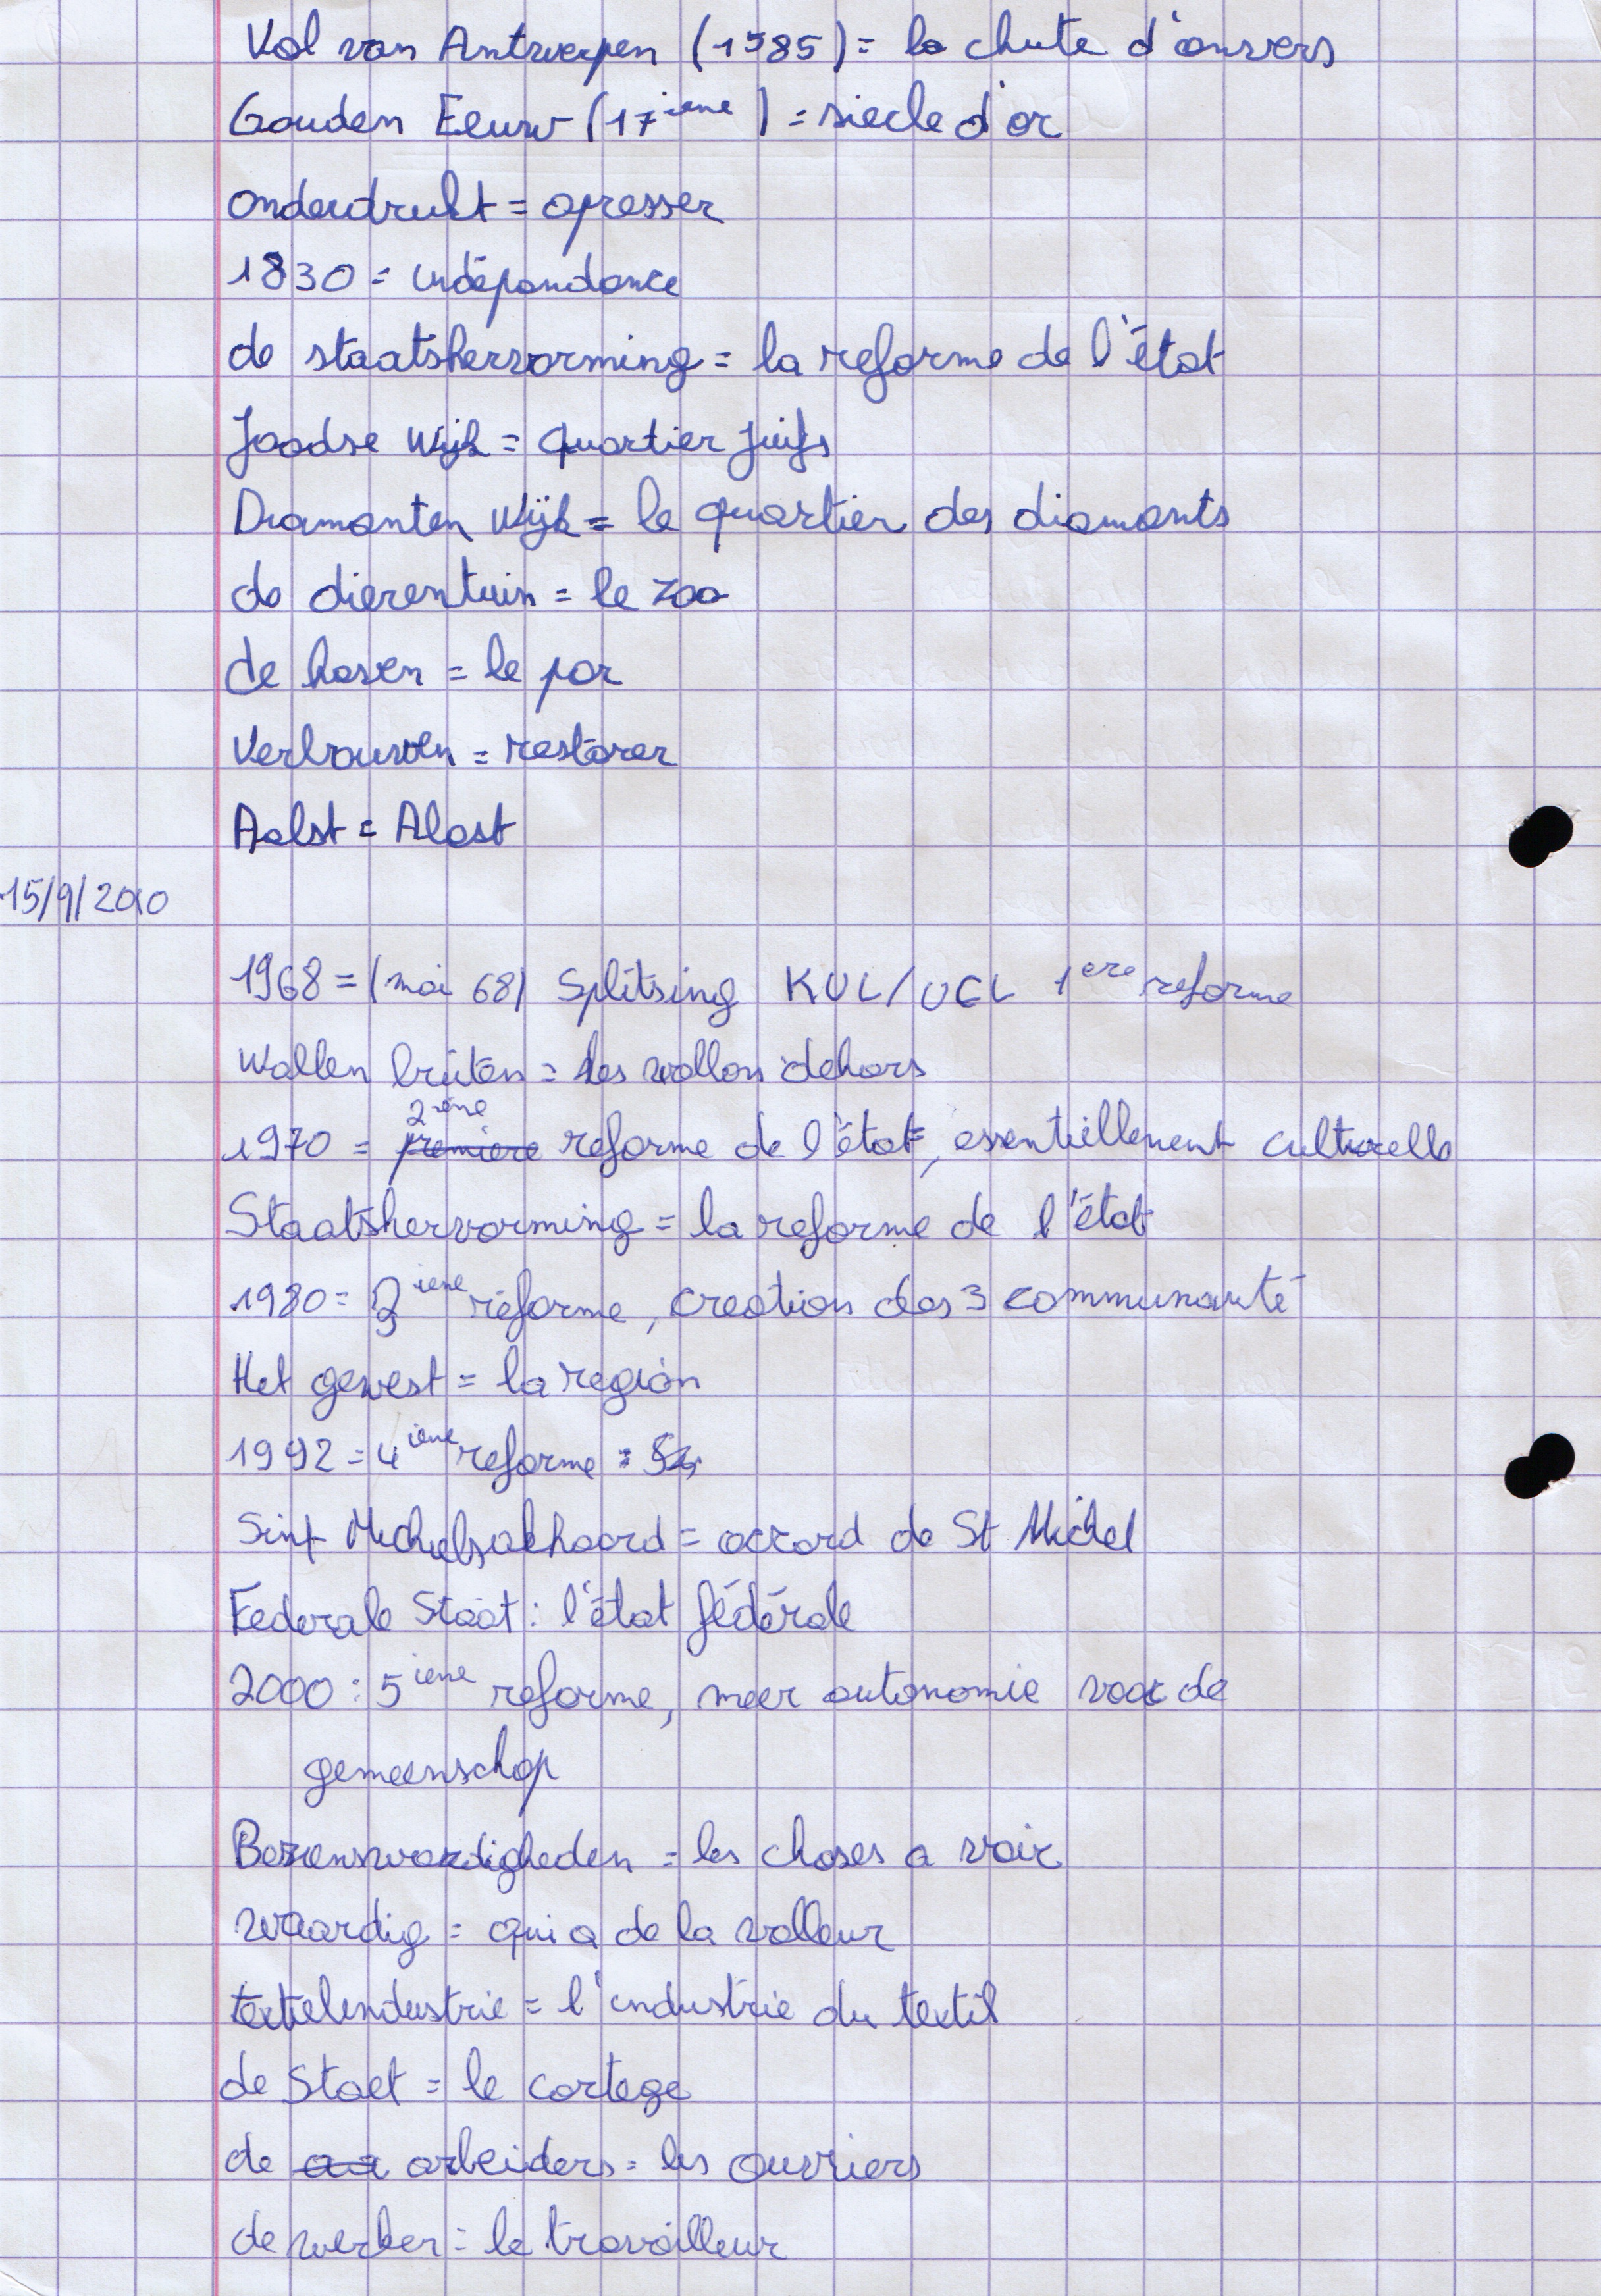 Val van Antwerpen (1585) = la chute d'anvers
Gouden Eeuw (17ieme) = siecle d'or
onderdrukt = opresser
1830 = indépandance
de staatshervorming = la reforme de l'état
Joodse Wijk = quartier juifs
Diamanten Wijk = le quartier des diamants
de dierentuin = le zoo
de haven = le por
Verbouwen = restorer
Aalst = Alost
15/9/2010
1968 = (mai 68) Splitsing KUL/UCL 1ere reforme
Wallen buiten = les wallons dehors
2ieme
1970 = premiere reforme de l'état, essentiellement culturelle
Staatshervorming = la reforme de l'état
1980 = 3ieme réforme, creation des 3 communauté
Het gewest = la region
1992 = 4ieme reforme :
Sint Michielsakkoord = accord de St Michel
Federale Staat : l'état fédérale
2000 : 5ieme reforme, meer autonomie voor de
gemeenschap
Bezienswaardigheden = les choses a voir
waardig = qui a de la valleur
textielindustrie = l'industrie du textil
de Stoet = le cortege
de arbeiders = les ouvriers
de werker = le travailleur